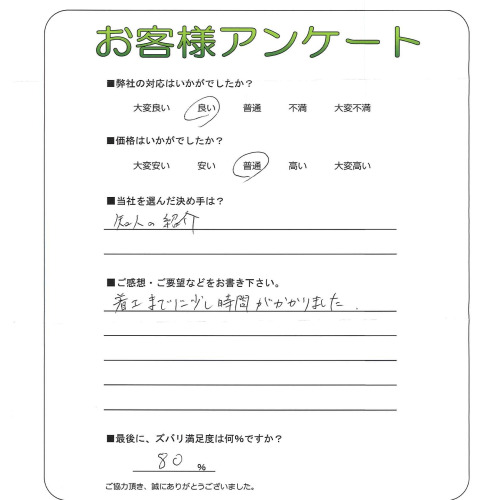 お客様アンケート
■弊社の対応はいかがでしたか？
大変良い 良い 普通 不満 大変不満
■価格はいかがでしたか？
大変安い 安い 普通 高い 大変高い
■当社を選んだ決め手は？
知人の紹介
■ご感想・ご要望などをお書き下さい。
着工までに少し時間がかかりました.
■最後に、ズバリ満足度は何%ですか？
80 %
ご協力頂き、誠にありがとうございました。